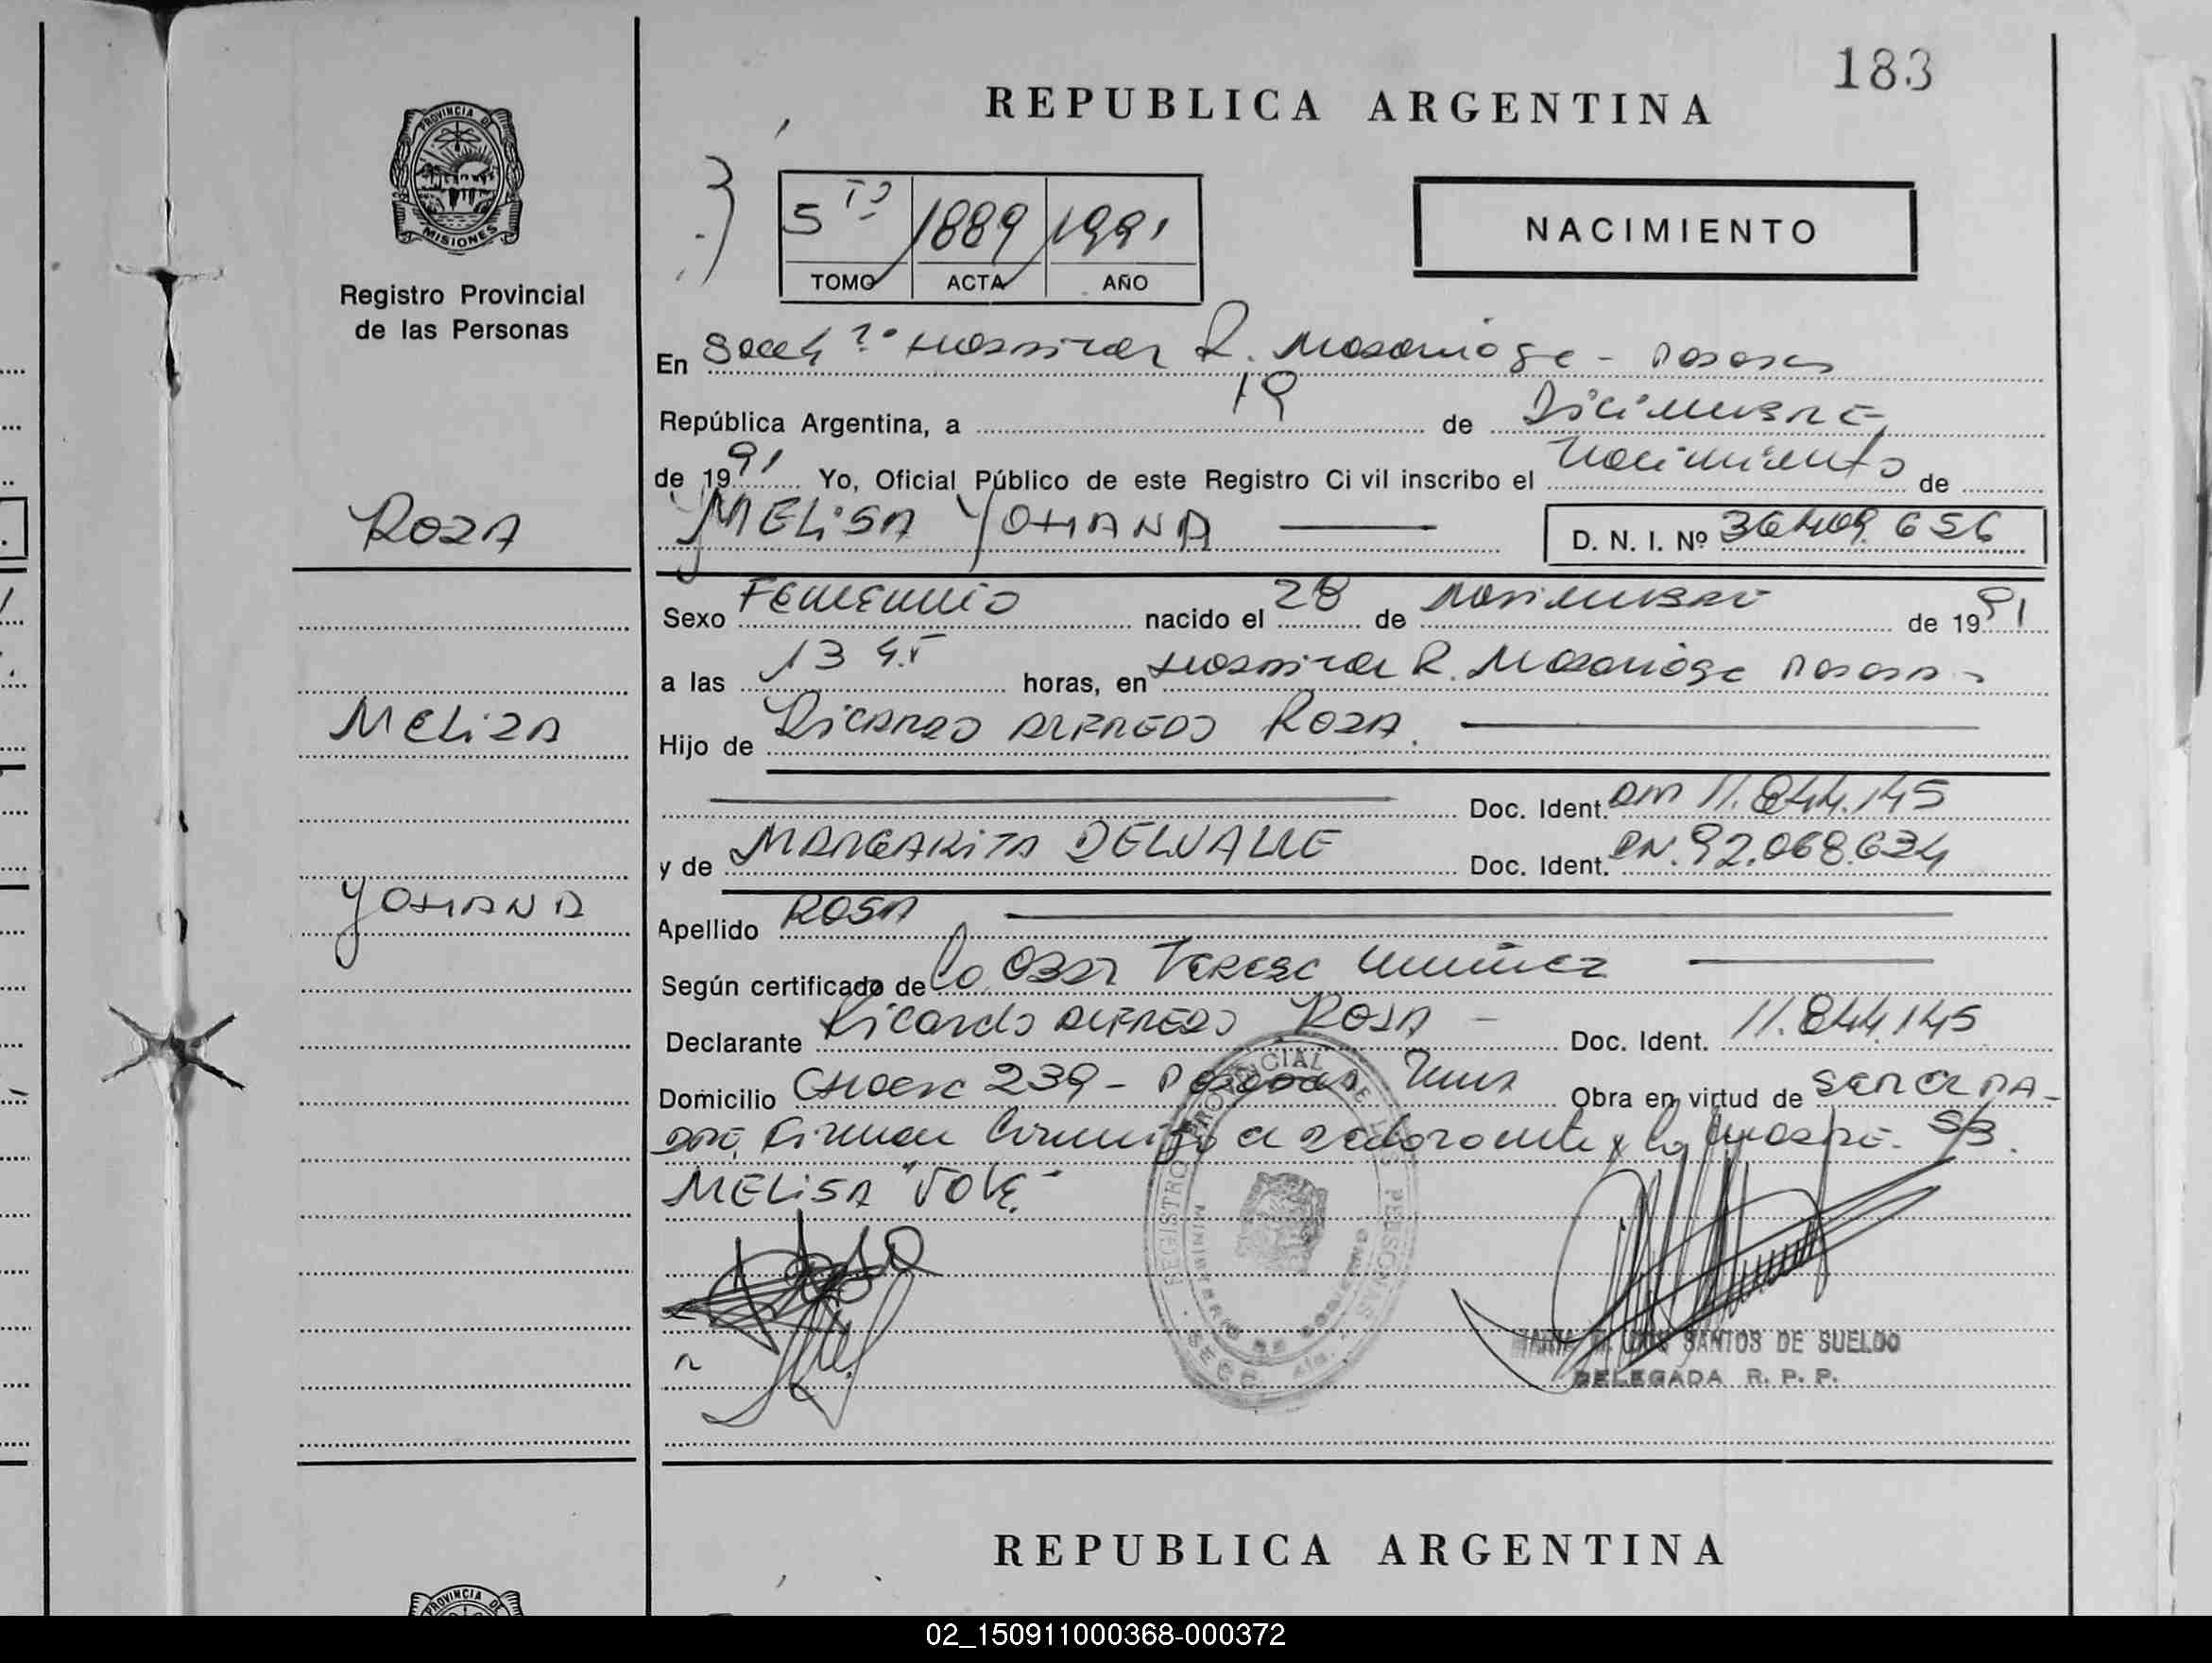 183
REPUBLICA ARGENTINA
PROVINCIA DE
MISIONES
Registro Provincial
de las Personas
5to 1889 1991
TOMO ACTA AÑO
NACIMIENTO
En Secc 4 Hospital R. Madariaga - Posadas
República Argentina, a 19 de DICIEMBRE
de 1991 Yo, Oficial Público de este Registro Ci vil inscribo el Nacimiento de
MELiSA YOHANA D. N. I. Nº 36.409.656
ROZA
Sexo FEMENiNO nacido el 28 de NOViEMBRE de 1991
a las 13 45 horas, en Hospital R. Madariaga Posadas -
MELiZA
Hijo de RiCARDO ALFREDO ROZA.
Doc. Ident. DM 11.844.145
y de MARGARiTA DELVALLE Doc. Ident. DN. 92.068.634
YOHANA
Apellido ROSA
Según certificado de la Obst Teresa
Declarante Ricardo ALFREDO ROSA - Doc. Ident. 11.844.145
Domicilio 239 - Posadas Mnes Obra en virtud de SER EL PA-
DRE, Firman Conmigo el declarante y la Madre. S/B.
MELiSA "VALE"
REGISTRO PROVINCIAL DE LAS PERSONAS
MINISTERIO DE GOBIERNO
SECC. 4ta.
DOS SANTOS DE SUELDO
DELEGADA R. P. P.
REPUBLICA ARGENTINA
PROVINCIA DE
02_150911000368-000372